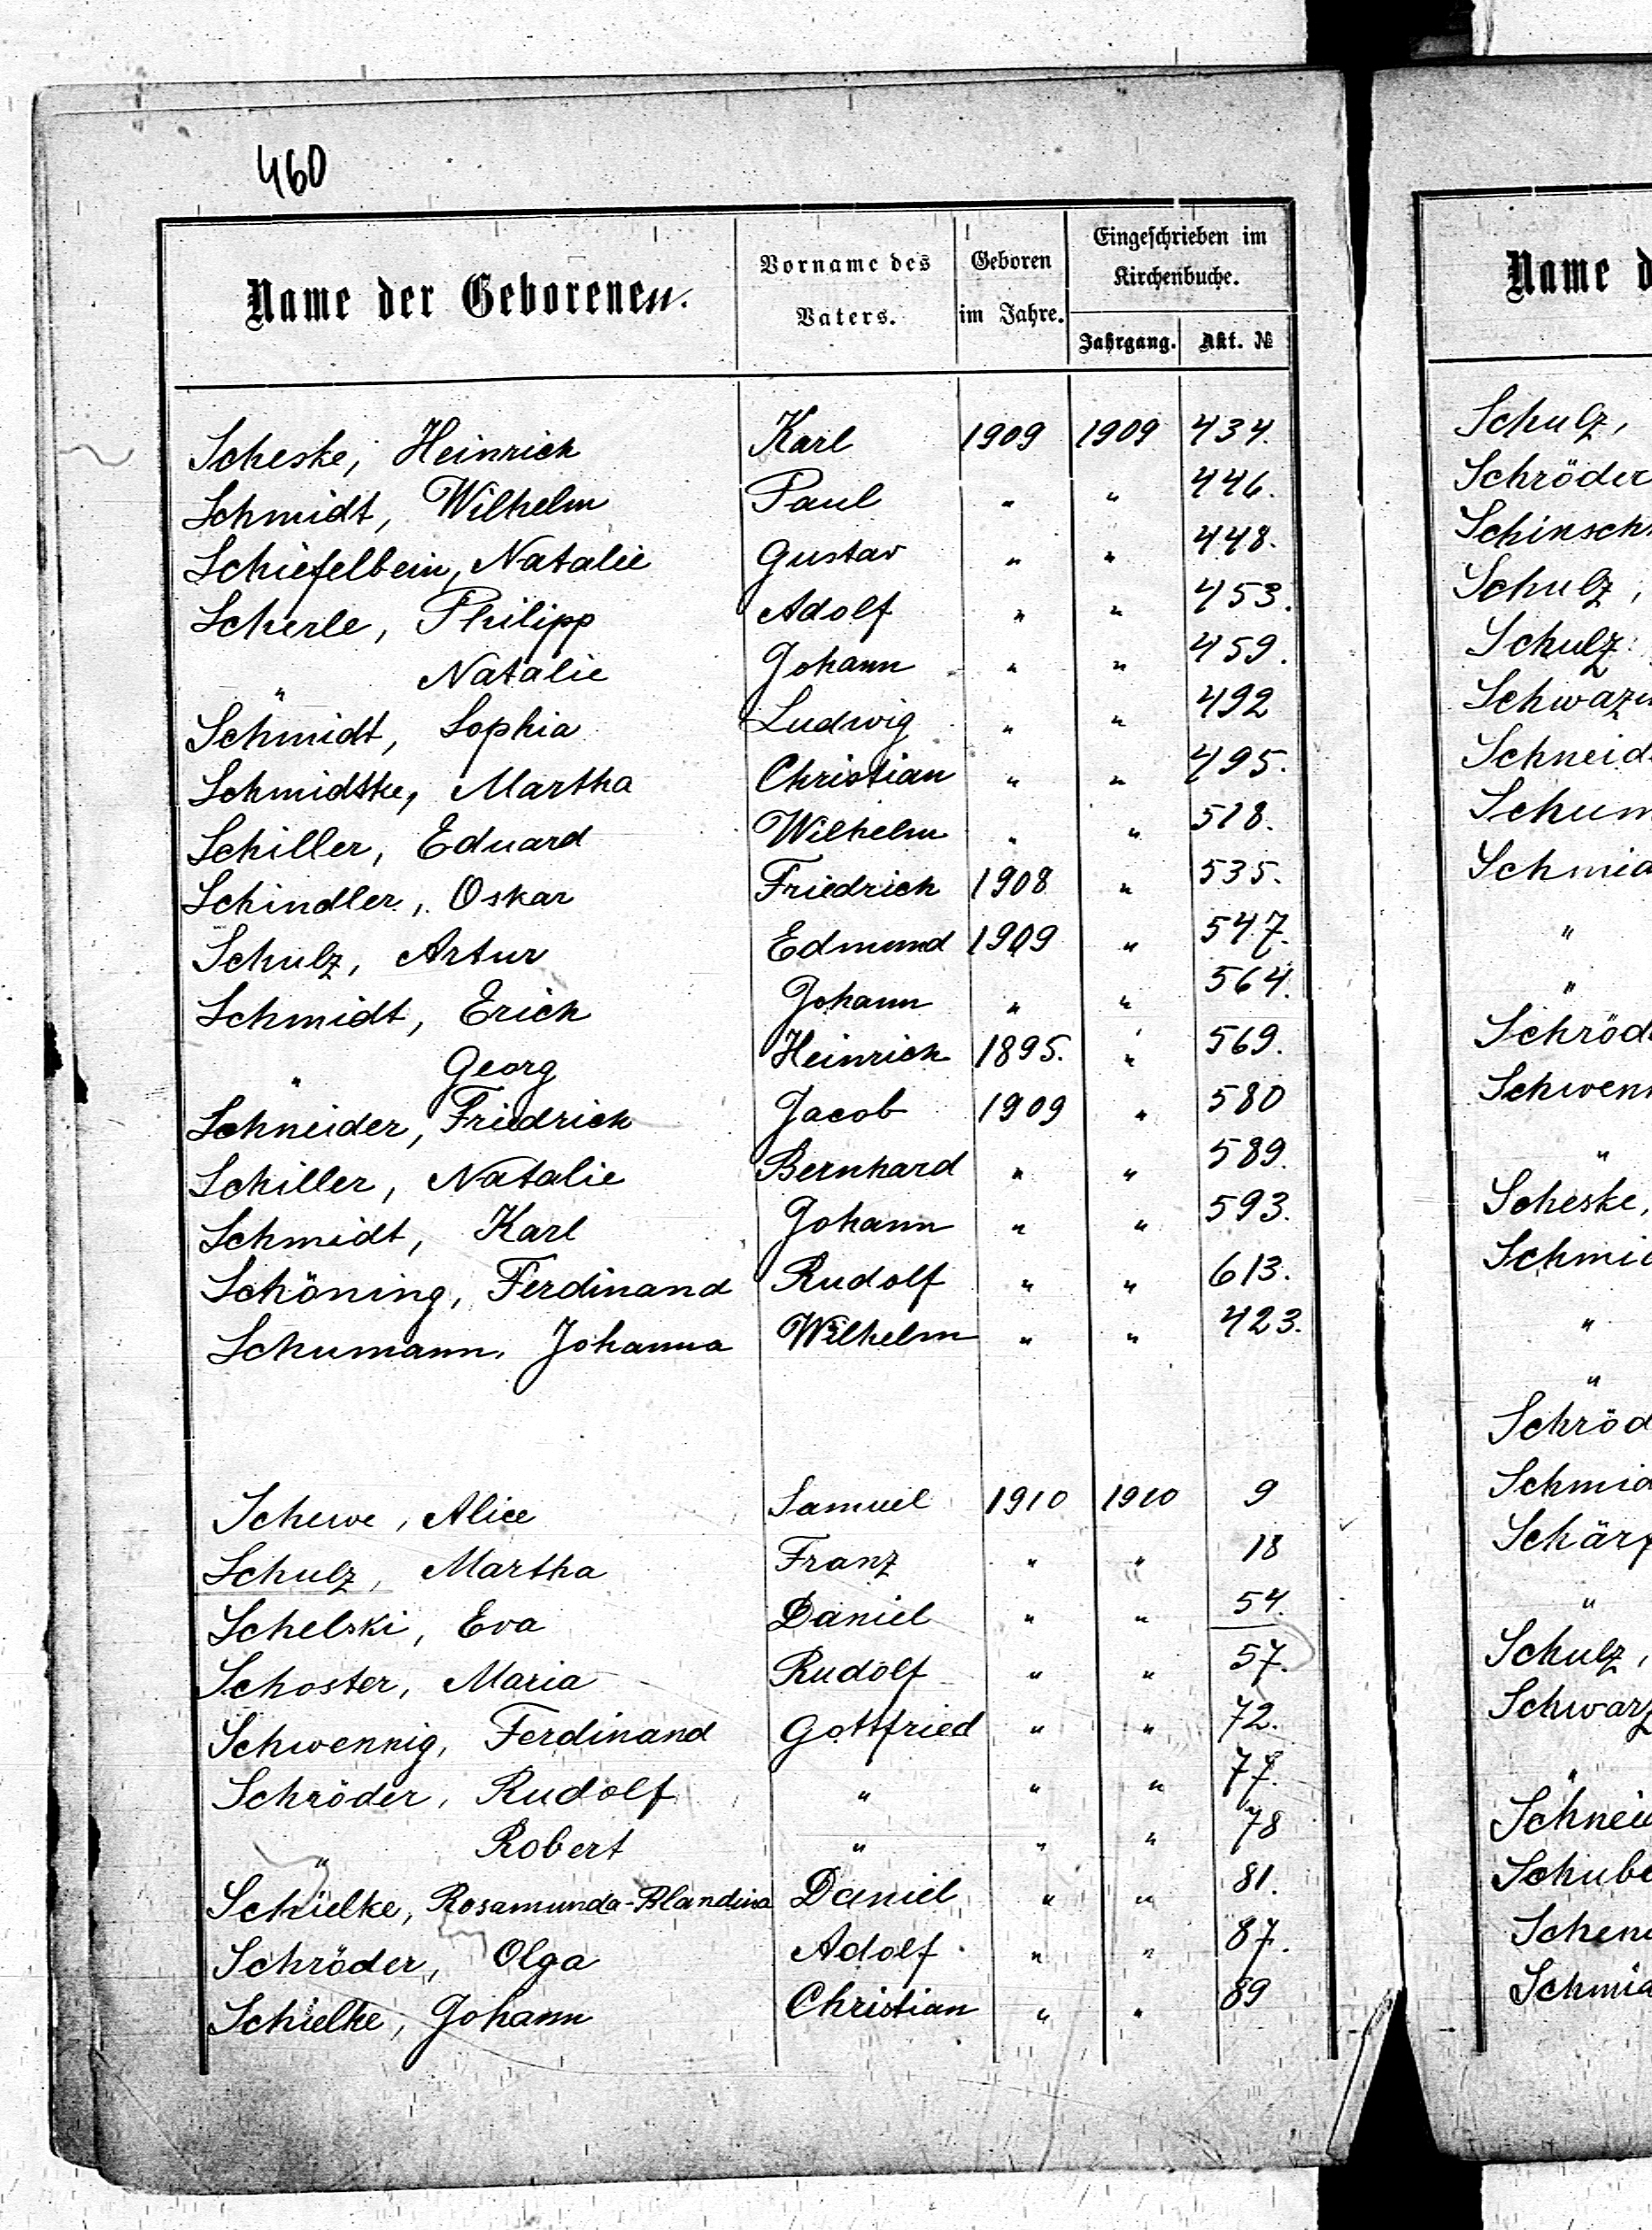 460
Name der Geborenen. Vorname des Vaters. Geboren im Jahre. Eingeschrieben im Kirchenbuche. Jahrgang. Akt. №
Scheske, Heinrich Karl 1909 1909 434.
Schmidt, Wilhelm Paul " " 446.
Schiefelbein, Natalie Gustav " " 448.
Scherle, Philipp Adolf " " 453.
" Natalie Johann " " 459.
Schmidt, Sophia Ludwig " " 492
Schmidtke, Martha Christian " " 495.
Schiller, Eduard Wilhelm " " 518.
Schindler, Oskar Friedrich 1908 " 535.
Schulz, Artur Edmund 1909 " 547.
Schmidt, Erich Johann " " 564.
" Georg Heinrich 1895. " 569.
Schneider, Friedrich Jacob 1909 " 580
Schiller, Natalie Bernhard " " 589.
Schmidt, Karl Johann " " 593.
Schöning, Ferdinand Rudolf " " 613.
Schumann, Johanna Wilhelm " " 423.
Schewe, Alice Samuel 1910 1910 9
Schulz, Martha Franz " " 18
Schelski, Eva Daniel " " 54.
Schoster, Maria Rudolf " " 57.
Schwennig, Ferdinand Gottfried " " 72.
Schröder, Rudolf " " " 77.
" Robert " " " 78
Schielke, Rosamunda-Blandina Daniel " " 81.
Schröder, Olga Adolf " " 87.
Schielke, Johann Christian " " 89
Name d
Schulz,
Schröder
Schinsch
Schulz,
Schulz
Schwaz
Schneid
Schum
Schmid
"
"
Schröd
Schwen
"
Scheske,
Schmid
"
"
Schröd
Schmid
Schärf
"
Schulz,
Schwarz
"
Schnei
Schube
Schen
Schmid